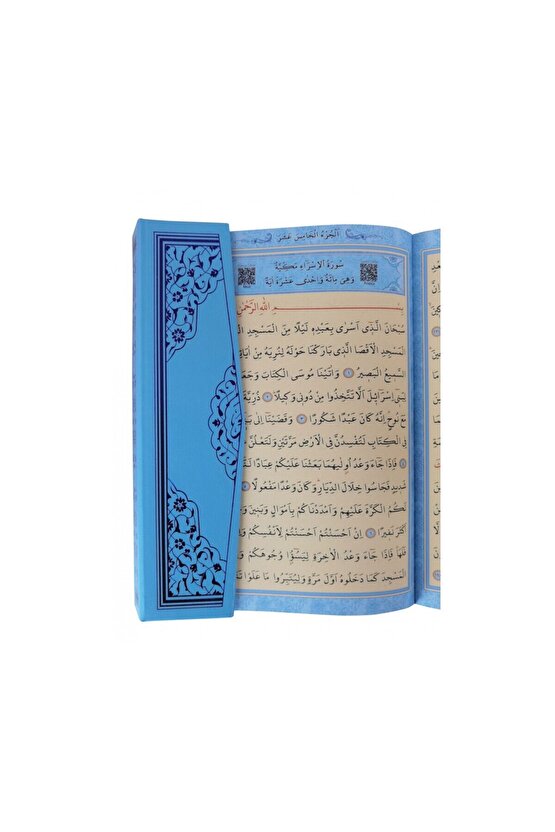 اَلْجُزْءُ الْخَامِسَ عَشَرَ
سُورَةُ الْاِسْرَاءِ مَكِّيَّةٌ
وَهِىَ مِائَةٌ وَاِحْدٰى عَشْرَةَ اٰيَةً
بِسْمِ اللّٰهِ الرَّحْمٰنِ
سُبْحَانَ الَّذٖٓى اَسْرٰى بِعَبْدِهٖ لَيْلًا مِنَ الْمَسْجِدِ
الْمَسْجِدِ الْاَقْصَا الَّذٖى بَارَكْنَا حَوْلَهُ لِنُرِيَهُ مِنْ اٰيَاتِنَا
السَّمٖيعُ الْبَصٖيرُ ﴿١﴾ وَاٰتَيْنَا مُوسَى الْكِتَابَ وَجَعَلْنَا
بَنٖٓى اِسْرَٓائٖلَ اَلَّا تَتَّخِذُوا مِنْ دُونٖى وَكٖيلًا ﴿٢﴾ ذُرِّيَّةَ
مَعَ نُوحٍ اِنَّهُ كَانَ عَبْدًا شَكُورًا ﴿٣﴾ وَقَضَيْنَٓا اِلٰى بَنٖٓى
فِى الْكِتَابِ لَتُفْسِدُنَّ فِى الْاَرْضِ مَرَّتَيْنِ وَلَتَعْلُنَّ
﴿٤﴾ فَاِذَا جَٓاءَ وَعْدُ اُو۫لٰيهُمَا بَعَثْنَا عَلَيْكُمْ عِبَادًا لَنَٓا
شَدٖيدٍ فَجَاسُوا خِلَالَ الدِّيَارِ وَكَانَ وَعْدًا مَفْعُولًا ﴿٥﴾
لَكُمُ الْكَرَّةَ عَلَيْهِمْ وَاَمْدَدْنَاكُمْ بِاَمْوَالٍ وَبَنٖينَ
اَكْثَرَ نَفٖيرًا ﴿٦﴾ اِنْ اَحْسَنْتُمْ اَحْسَنْتُمْ لِاَنْفُسِكُمْ
فَلَهَا فَاِذَا جَٓاءَ وَعْدُ الْاٰخِرَةِ لِيَسُٓؤُ۫ا وُجُوهَكُمْ
الْمَسْجِدَ كَمَا دَخَلُوهُ اَوَّلَ مَرَّةٍ وَلِيُتَبِّرُوا مَا عَلَوْا